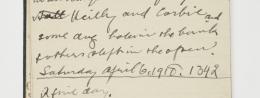 Reilly and Corbie and
some dug holes in the bank
others slept in the open.
Saturday April 6, 1918. 1342
A fine day.